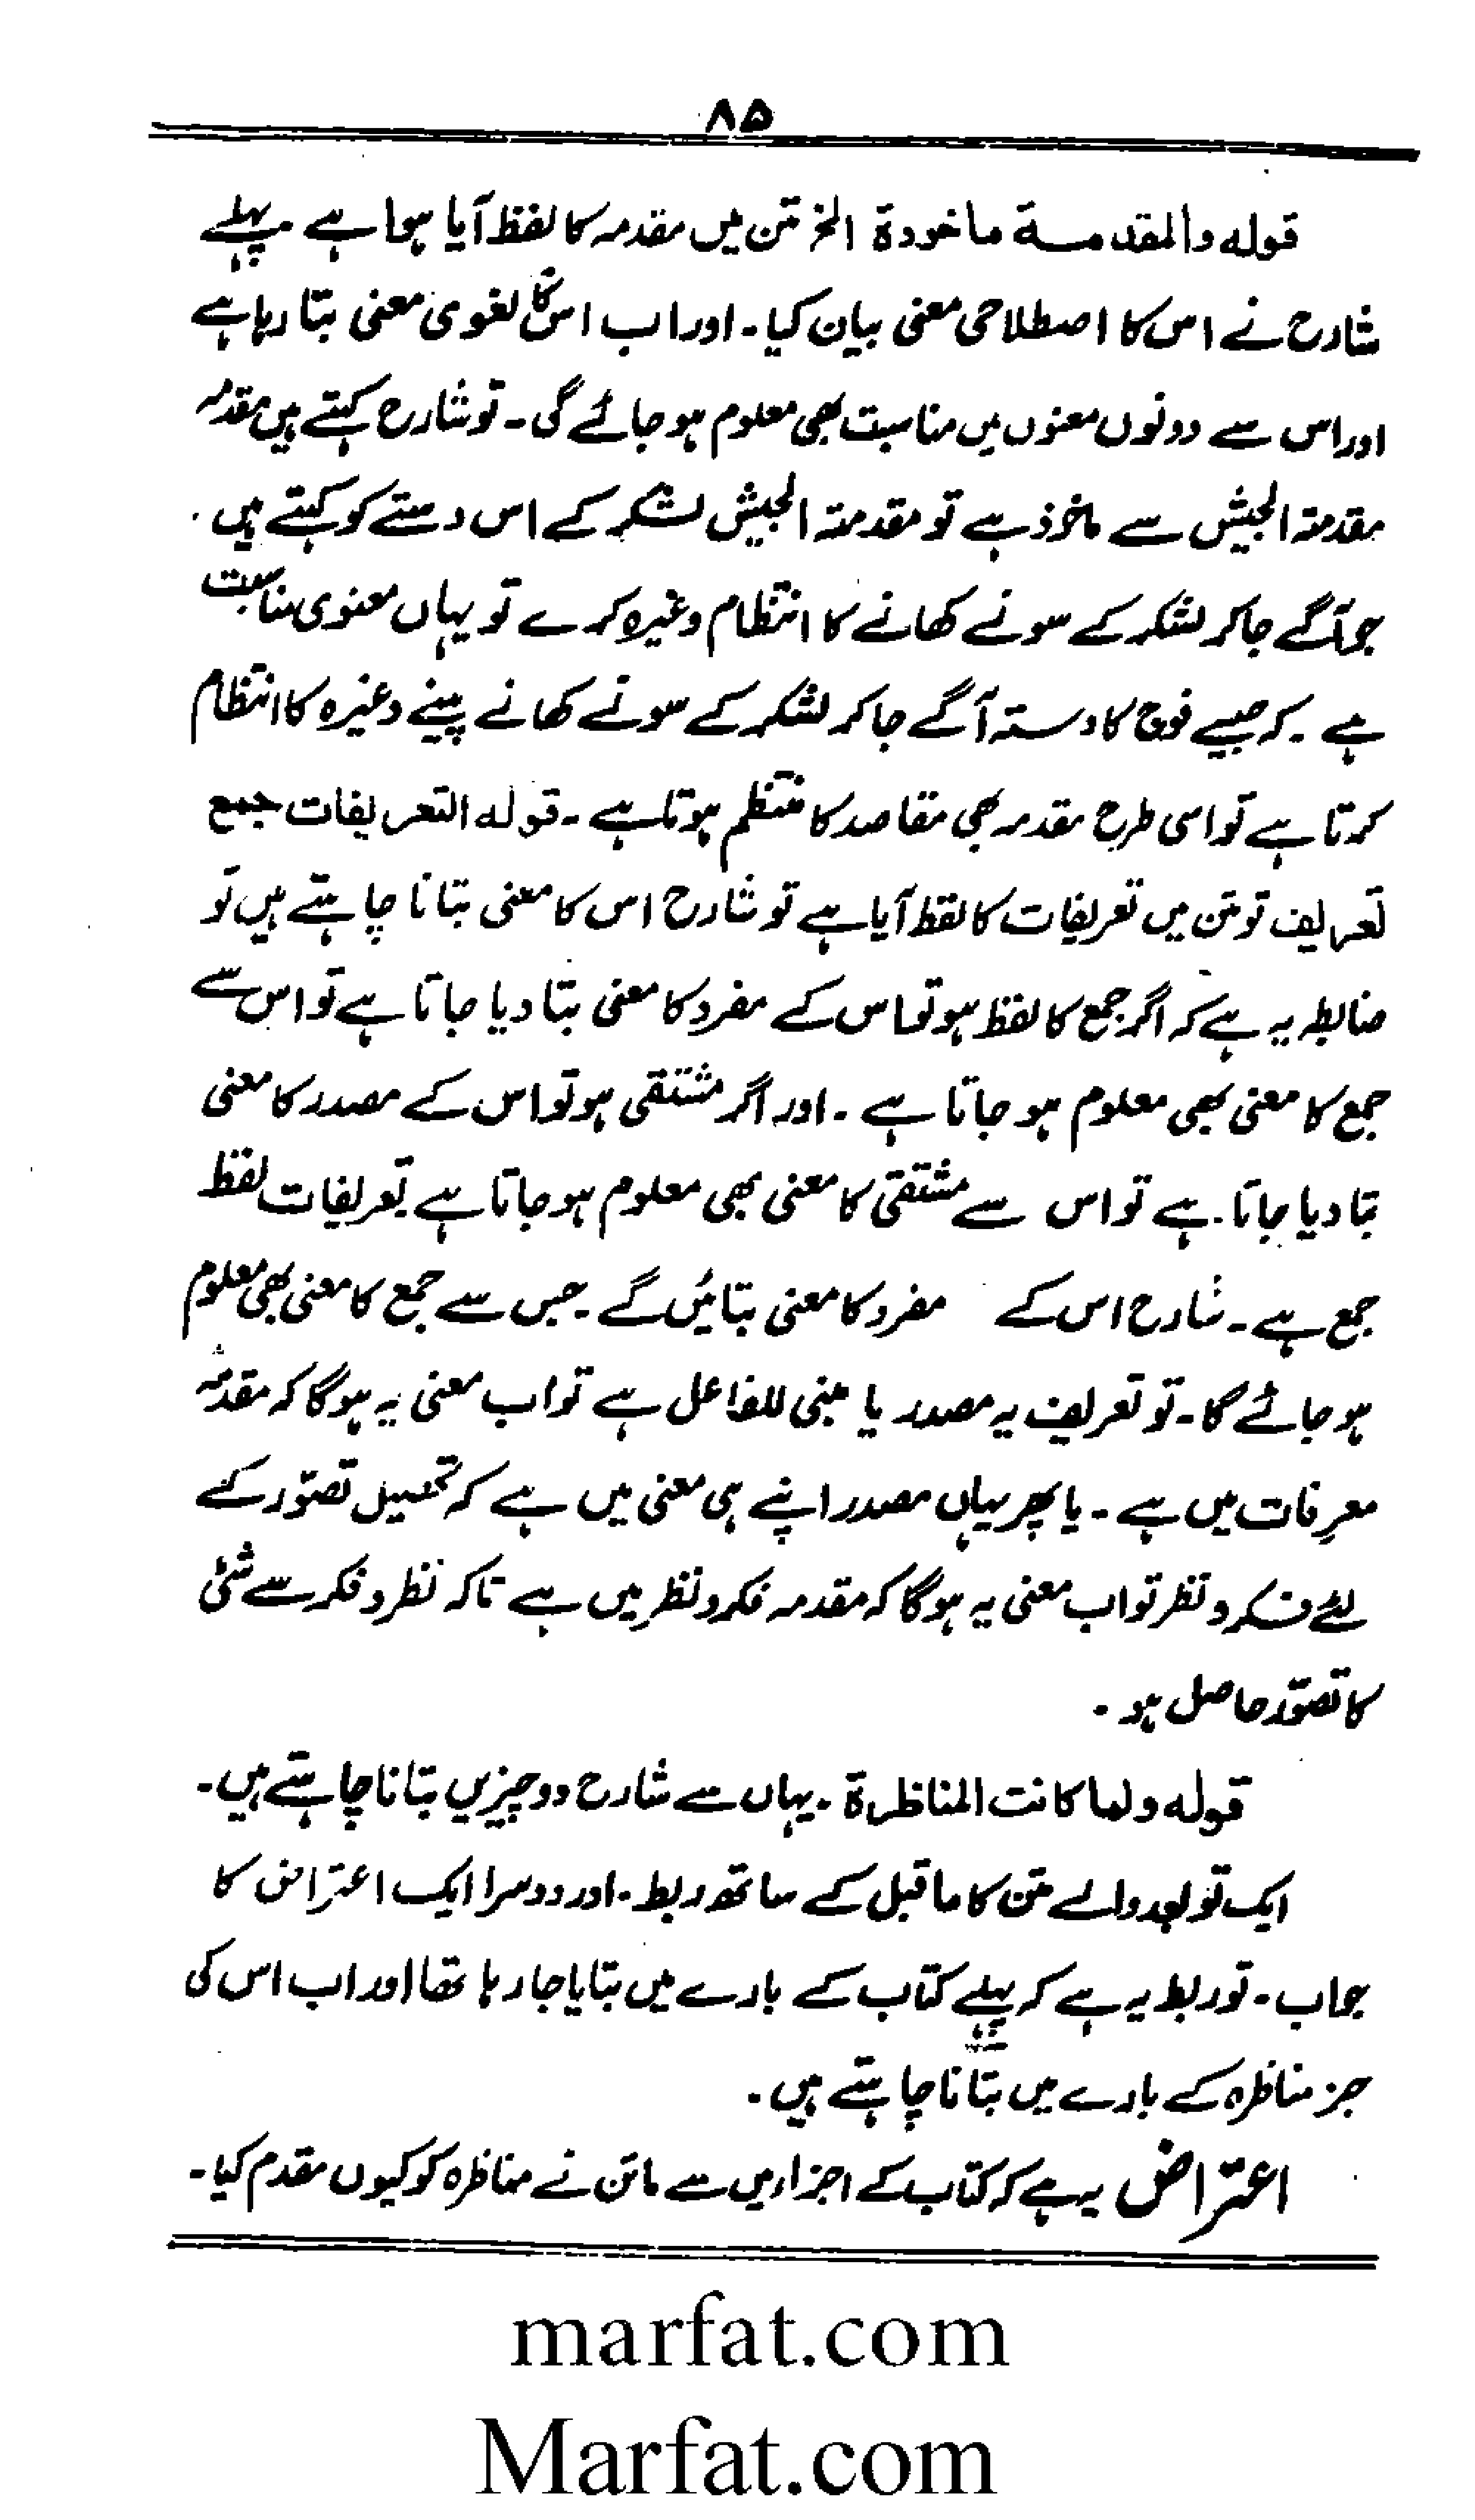 ۸۵
قوله والمقدمة ماخوذة الخ متن میں مقدمہ کا لفظ آیا ہوا ہے۔ پہلے
شارح نے اس کا اصطلاحی معنی بیان کیا۔ اور اب اس کا لغوی معنی بتا رہا ہے
اور اس سے دونوں معنوں میں مناسبت بھی معلوم ہو جائے گی۔ تو شارح کہتے ہیں مقدمہ
مقدمۃ الجیش سے ماخوذ ہے تو مقدمۃ الجیش لشکر کے اس دستے کو کہتے ہیں۔
جو آگے جا کر لشکر کے سونے کھانے کا انتظام وغیرہ کرے تو یہاں معنوی مناسبت
ہے۔ کہ جیسے فوج کا دستہ آگے جا کر لشکر کے سونے کھانے پینے وغیرہ کا انتظام
کرتا ہے تو اسی طرح مقدمہ بھی مقاصد کا منتظم ہوتا ہے۔ قوله التعریفات جمع
تعریف تو متن میں تعریفات کا لفظ آیا ہے تو شارح اس کا معنی بتانا چاہتے ہیں تو
ضابطہ یہ ہے کہ اگر جمع کا لفظ ہو تو اس کے مفرد کا معنی بتا دیا جاتا ہے تو اس سے
جمع کا معنی بھی معلوم ہو جاتا ہے۔ اور اگر مشتقی ہو تو اس کے مصدر کا معنی
بتا دیا جاتا۔ ہے تو اس سے مشتقی کا معنی بھی معلوم ہو جاتا ہے تعریفات لفظ
جمع ہے۔ شارح اس کے مفرد کا معنی بتائیں گے۔ جس سے جمع کا معنی بھی معلوم
ہو جائے گا۔ تو تعریف یہ مصدر یا مبنی للفاعل ہے تو اب معنی یہ ہوگا کہ مقدمہ
معرفات میں ہے۔ یا پھر یہاں مصدر اپنے ہی معنی میں ہے کہ تحصیل تصوّر کے
لئے فکر و نظر تو اب معنی یہ ہوگا کہ مقدمہ فکر و نظر میں ہے تاکہ نظر و فکر سے شئی
کا تصوّر حاصل ہو۔
قوله ولما كانت المناظرة۔ یہاں سے شارح دو چیزیں بتانا چاہتے ہیں۔
ایک تو بعد والے متن کا ماقبل کے ساتھ ربط۔ اور دوسرا ایک اعتراض کا
جواب۔ تو ربط یہ ہے کہ پہلے کتاب کے بارے میں بتایا جا رہا تھا اور اب اس کی
جز مناظرہ کے بارے میں بتانا چاہتے ہیں۔
اعتراض یہ ہے کہ کتاب کے اجزاء میں سے ماتن نے مناظرہ کو کیوں مقدم کیا۔
marfat.com
Marfat.com